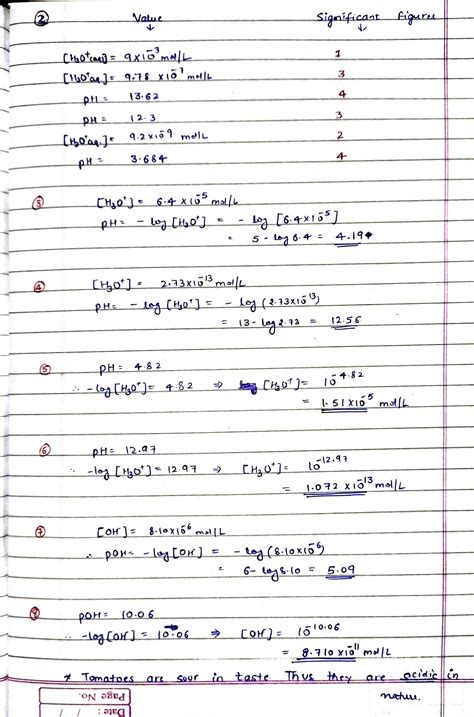 ② Value Significant figures
↓ ↓
[H₃O⁺(aq)] = 9×10⁻³ mol/L 1
[H₃O⁺aq.] = 9.78 ×10⁻⁷ mol/L 3
pH = 13.62 4
pH = 12.3 3
[H₃O⁺aq.] = 9.2×10⁻⁹ mol/L 2
pH = 3.684 4
③ [H₃O⁺] = 6.4 ×10⁻⁵ mol/L
pH = - log [H₃O⁺] = - log [6.4×10⁻⁵]
= 5 - log 6.4 = 4.194
④ [H₃O⁺] = 2.73×10⁻¹³ mol/L
pH = - log [H₃O⁺] = - log (2.73×10⁻¹³)
= 13 - log 2.73 = 12.56
⑤ pH = 4.82
∴ -log [H₃O⁺] = 4.82 ⇒ [H₃O⁺] = 10⁻⁴·⁸²
= 1.51×10⁻⁵ mol/L
⑥ pH = 12.97
∴ -log [H₃O⁺] = 12.97 ⇒ [H₃O⁺] = 10⁻¹²·⁹⁷
= 1.072 ×10⁻¹³ mol/L
⑦ [OH⁻] = 8.10×10⁻⁶ mol/L
∴ pOH = - log [OH⁻] = - log (8.10×10⁻⁶)
= 6 - log 8.10 = 5.09
⑧ pOH = 10.06
∴ -log [OH⁻] = 10.06 ⇒ [OH⁻] = 10⁻¹⁰·⁰⁶
= 8.710 ×10⁻¹¹ mol/L
* Tomatoes are sour in taste Thus they are acidic in
nature.
Page No.
Date : / /